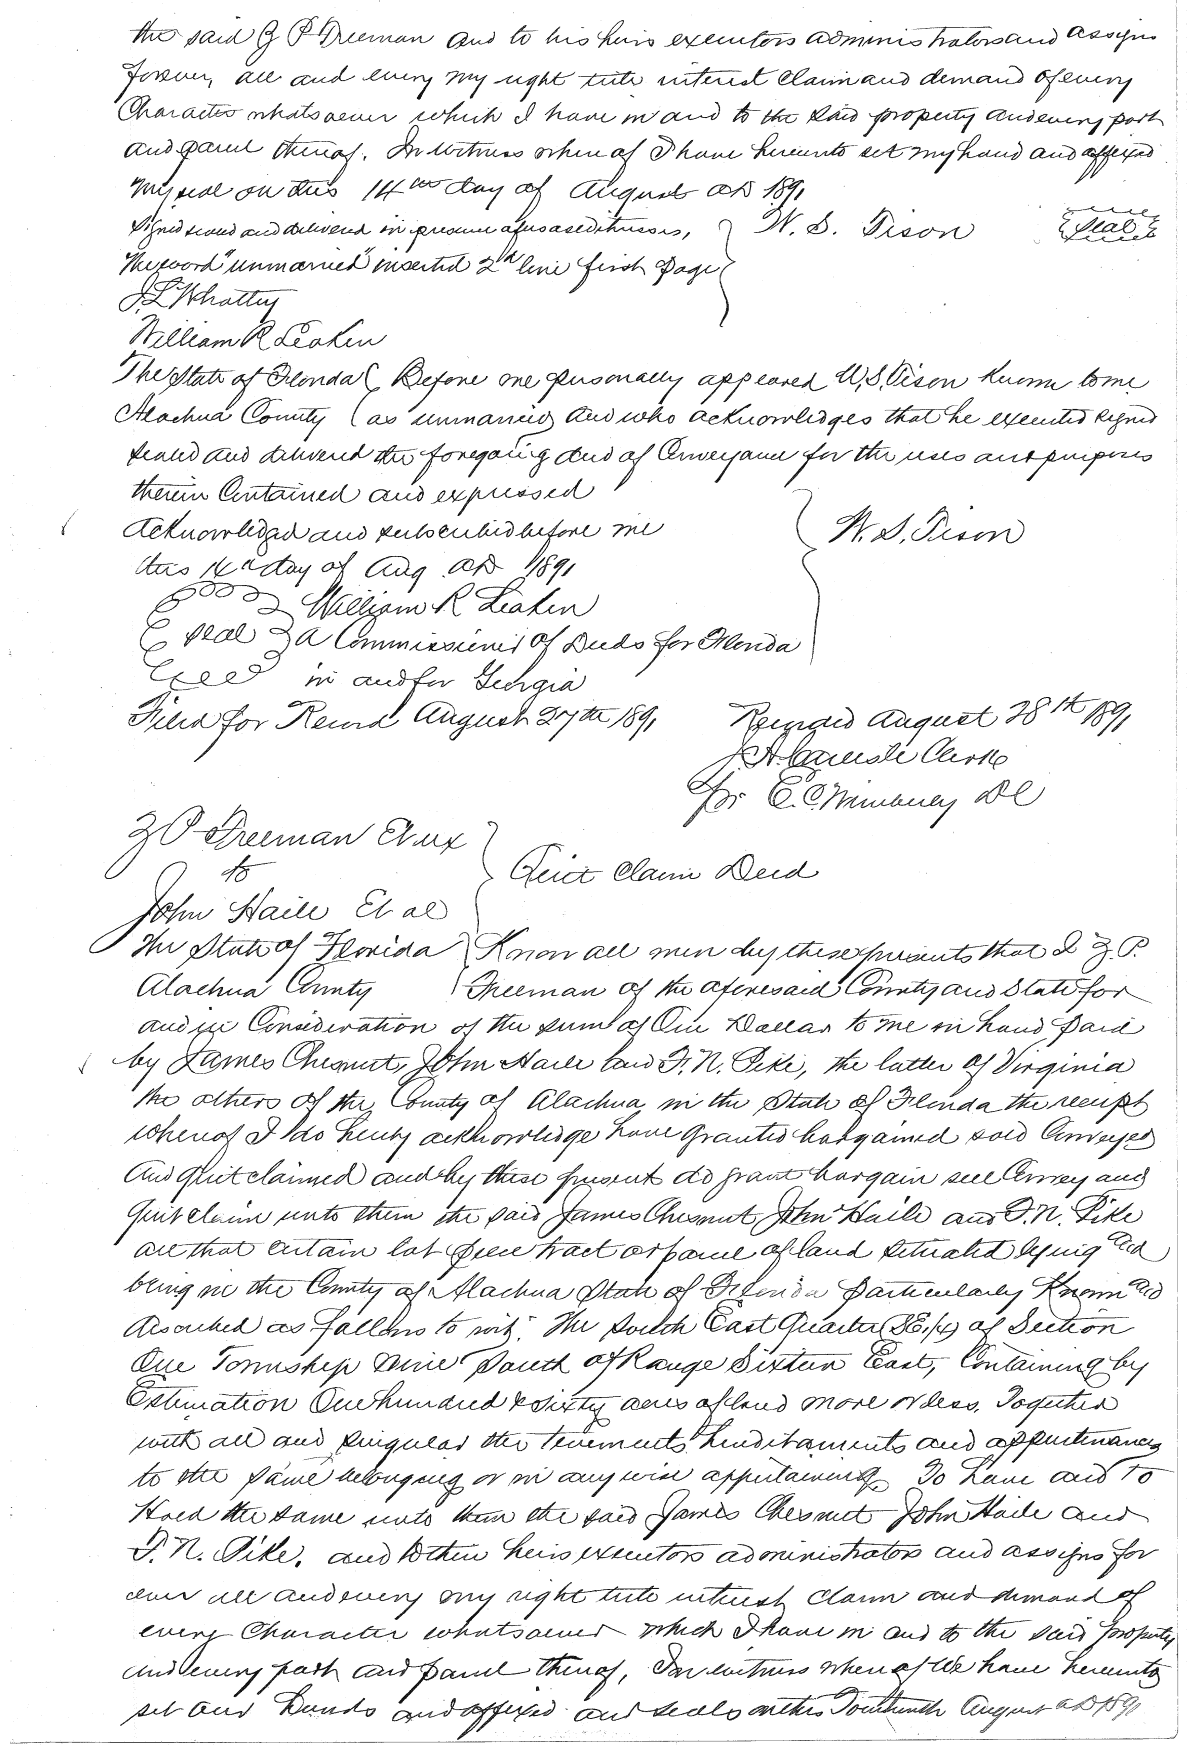 the said Z P Freeman and to his heirs executors administrators and assigns
forever, all and every my right title interest claim and demand of every
Character whatsoever which I have in and to the said property and every part
and parcel thereof. In witness whereof I have hereunto set my hand and affixed
my seal on this 14th day of August AD 1891
Signed sealed and delivered in presence of us as witnesses, W. S. Tison Seal
The word "unmarried" inserted 2nd line first Page
William R Leaken
The State of Florida Before me personally appeared W. S. Tison known to me
Alachua County as unmarried and who acknowledges that he executed signed
sealed and delivered the foregoing deed of Conveyance for the uses and purposes
therein Contained and expressed
Acknowledged and subscribed before me W. S. Tison
this 14th day of Aug AD 1891
William R Leaken
Seal A Commissioner of Deeds for Florida
in and for Georgia
Filed for Record August 27th 1891 Recorded August 28th 1891
J. A. Carlisle Clerk
Per E. C. DC
Z P Freeman Et ux
to Quit Claim Deed
John Haile Et al
The State of Florida Know all men by these presents that I Z. P.
Alachua County Freeman of the aforesaid County and State for
and in Consideration of the sum of One Dollar to me in hand paid
by James Chesnut, John Haile and F. N. Pike, the latter of Virginia
the others of the County of Alachua in the State of Florida the receipt
whereof I do hereby acknowledge have granted bargained sold Conveyed
and quit claimed and by these present do grant bargain sell Convey and
quit claim unto them the said James Chesnut, John Haile and F. N. Pike
all that certain lot piece tract or parcel of land situated lying and
being in the County of Alachua State of Florida Particularly Known and
described as follows to wit: The South East Quarter (SE 1/4) of Section
One Township Nine South of Range Sixteen East, Containing by
Estimation One hundred & sixty acres of land more or less. Together
with all and singular the tenements hereditaments and appurtenances
to the same belonging or in anywise appertaining. To have and to
Hold the same unto them the said James Chesnut John Haile and
F. N. Pike, and to their heirs executors administrators and assigns for
ever all and every my right title interest claim and demand of
every Character whatsoever which I have in and to the said property
and every part and parcel thereof, In witness whereof We have hereunto
set our hands and affixed our seals on this Fourteenth August AD 1891